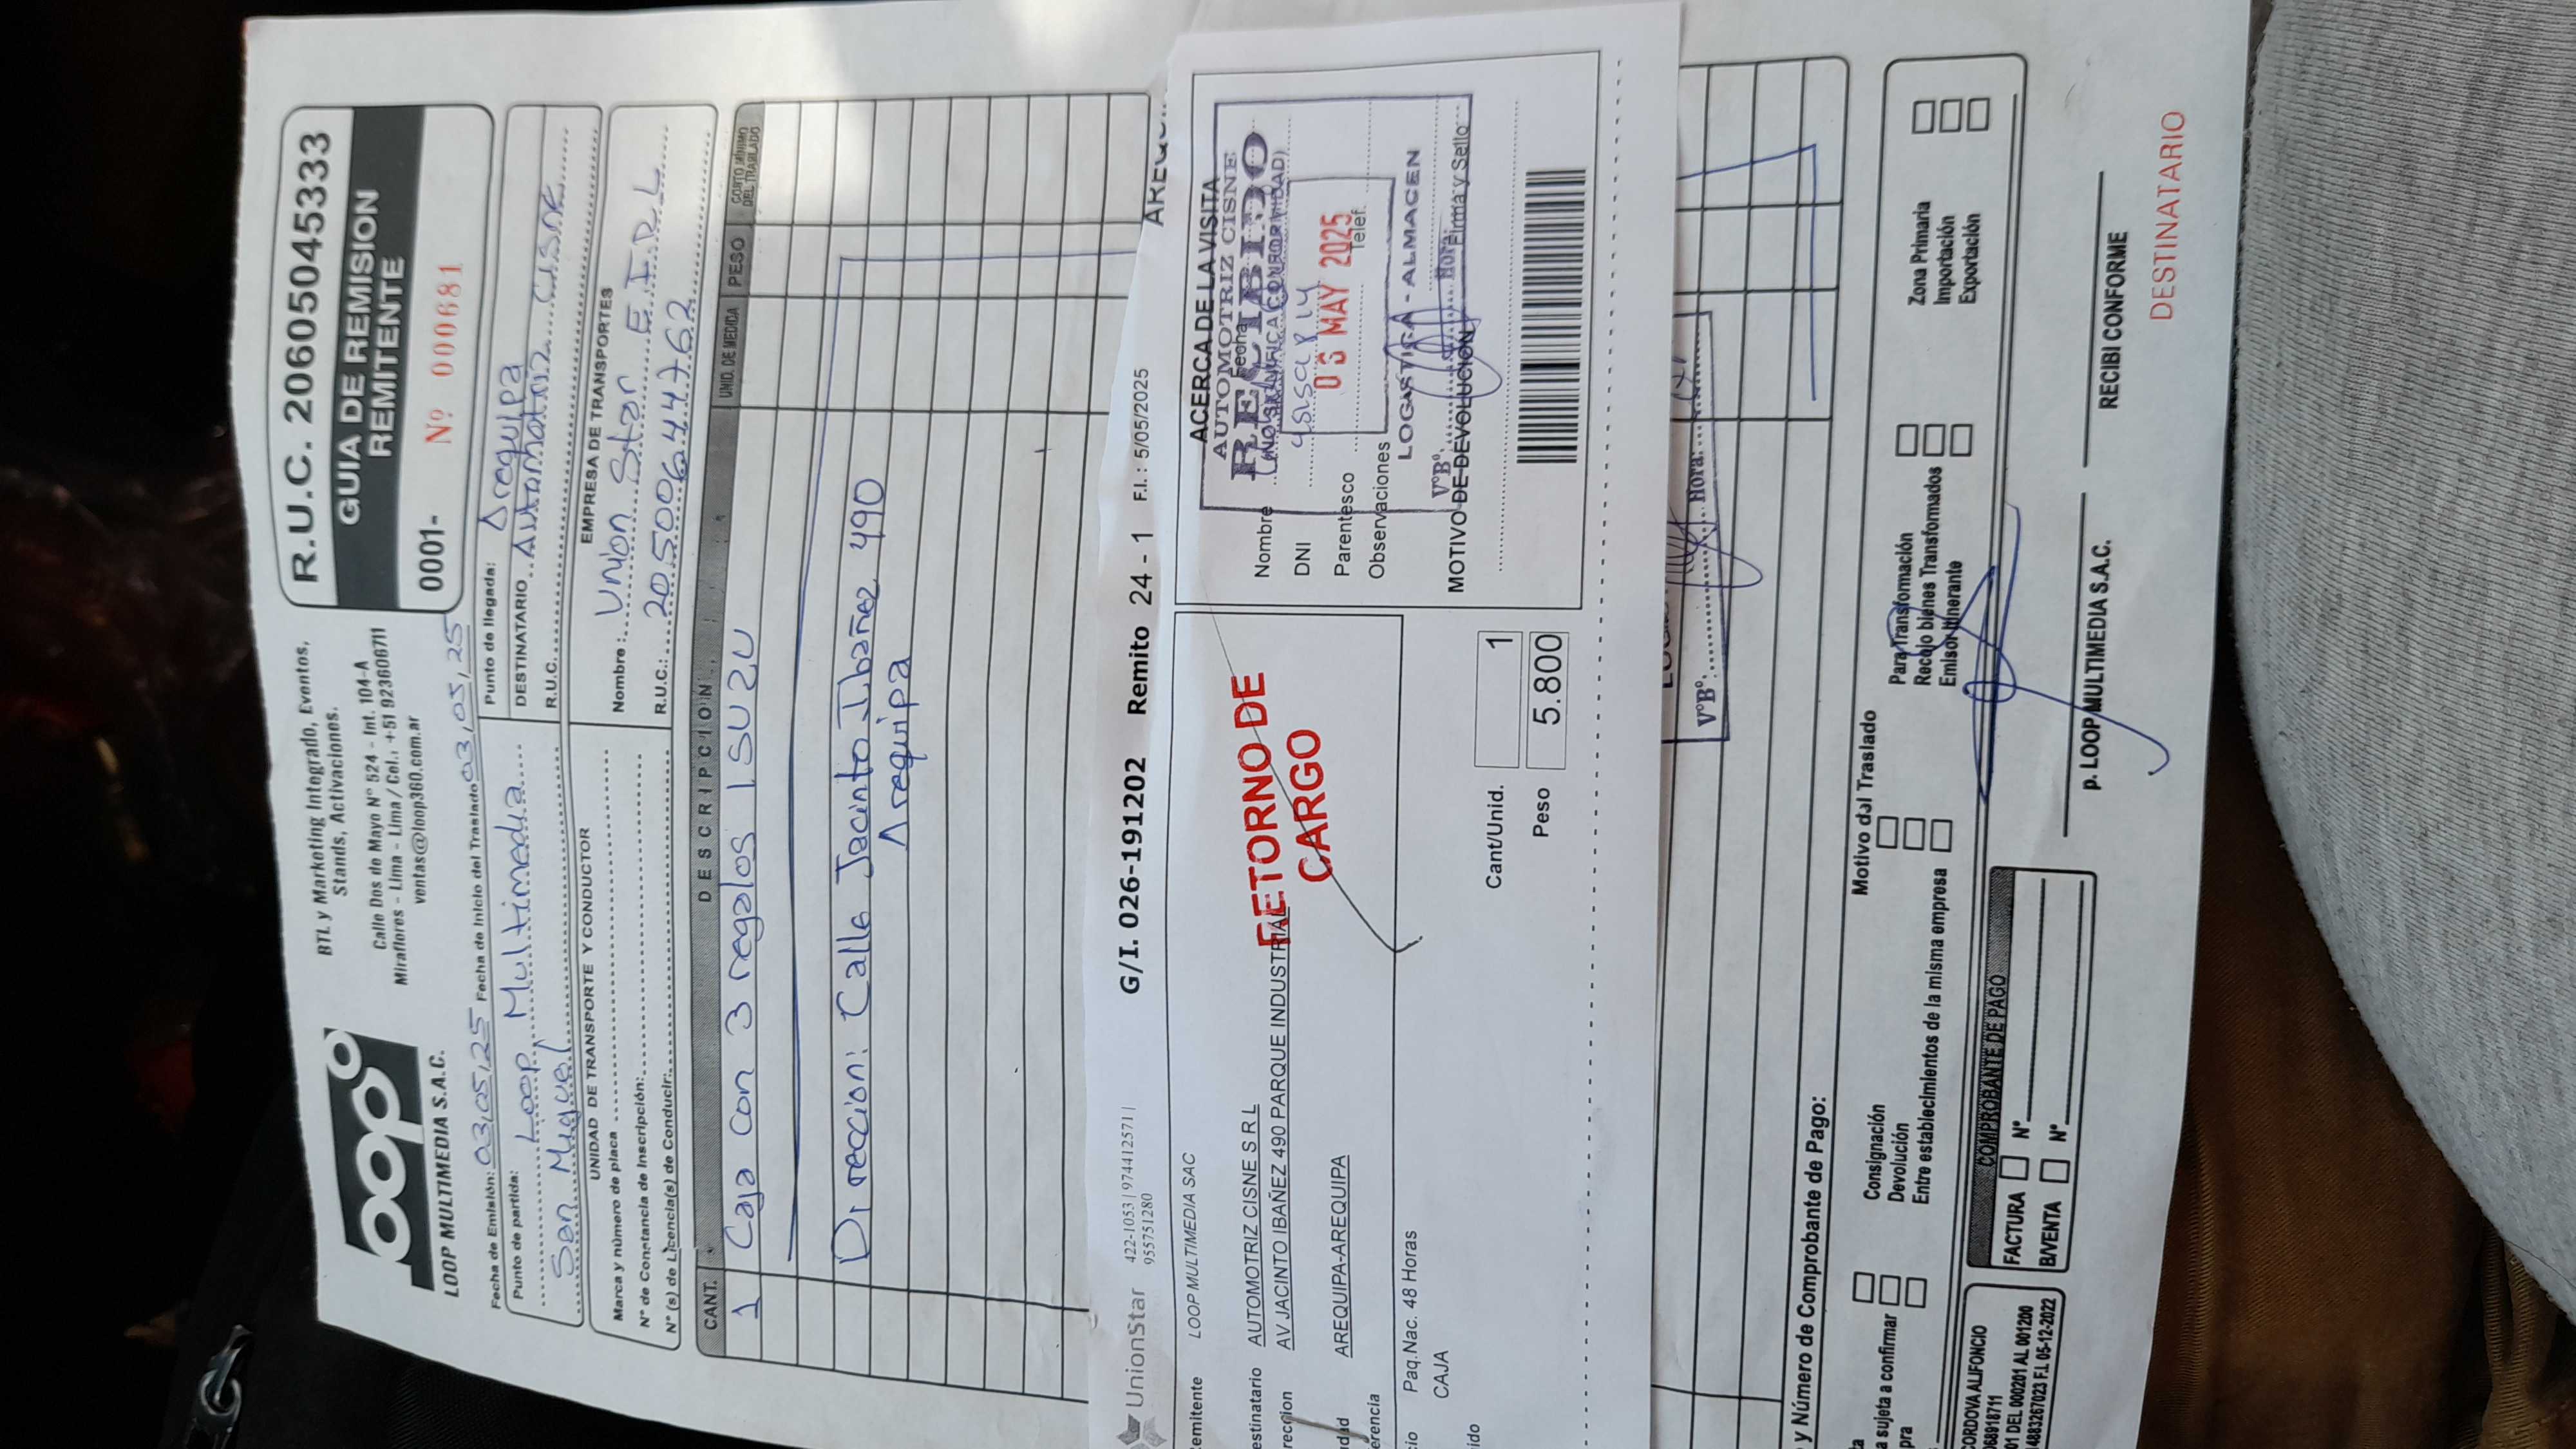 loop
LOOP MULTIMEDIA S.A.C.
BTL y Marketing Integrado, Eventos,
Stands, Activaciones.
Calle Dos de Mayo N° 524 - Int. 104-A
Miraflores - Lima - Lima / Cel.: +51 923606711
ventas@loop360.com.ar
R.U.C. 20605045333
GUIA DE REMISION
REMITENTE
0001- Nº 000681
Fecha de Emisión: 03,05,25 Fecha de Inicio del Traslado 03,05,25
Punto de partida: Loop Multimedia
San Miguel
Punto de llegada: Arequipa
DESTINATARIO Automotriz Cisne
R.U.C.
UNIDAD DE TRANSPORTE Y CONDUCTOR
Marca y número de placa
N° de Constancia de Inscripción:
N° (s) de Licencia(s) de Conducir:
EMPRESA DE TRANSPORTES
Nombre: Union Star E.I.R.L
R.U.C.: 20550064762
CANT. DESCRIPCION UNID. DE MEDIDA PESO COSTO MINIMO DEL TRASLADO
1 Caja con 3 regalos ISUZU
Direccion: Calle Jacinto Ibañez 490
Arequipa
UnionStar 422-1053 | 974412571 |
955751280
G/I. 026-191202 Remito 24 - 1 F.I.: 5/05/2025
emitente LOOP MULTIMEDIA SAC
estinatario AUTOMOTRIZ CISNE S R L
reccion AV JACINTO IBAÑEZ 490 PARQUE INDUSTRIAL
dad AREQUIPA-AREQUIPA
erencia
cio Paq.Nac. 48 Horas
ido CAJA
RETORNO DE
CARGO
Cant/Unid. 1
Peso 5.800
ACERCA DE LA VISITA
AUTOMOTRIZ CISNE
RECIBIDO
(NO SIGNIFICA CONFORMIDAD)
Nombre
Fecha
DNI
06 MAY 2025
Parentesco Telef.
Observaciones
LOGISTICA - ALMACEN
V°B°: Hora:
Firma y Sello
MOTIVO DE DEVOLUCIÓN
V°B°: Hora:
y Número de Comprobante de Pago:
Motivo del Traslado
a sujeta a confirmar
pra
Consignación
Devolución
Entre establecimientos de la misma empresa
Para Transformación
Recojo bienes Transformados
Emisor Itinerante
Zona Primaria
Importación
Exportación
CORDOVA ALIFONCIO
01 DEL 000201 AL 001200
F.I. 05-12-2022
COMPROBANTE DE PAGO
FACTURA N°
B/VENTA N°
p. LOOP MULTIMEDIA S.A.C.
RECIBI CONFORME
DESTINATARIO